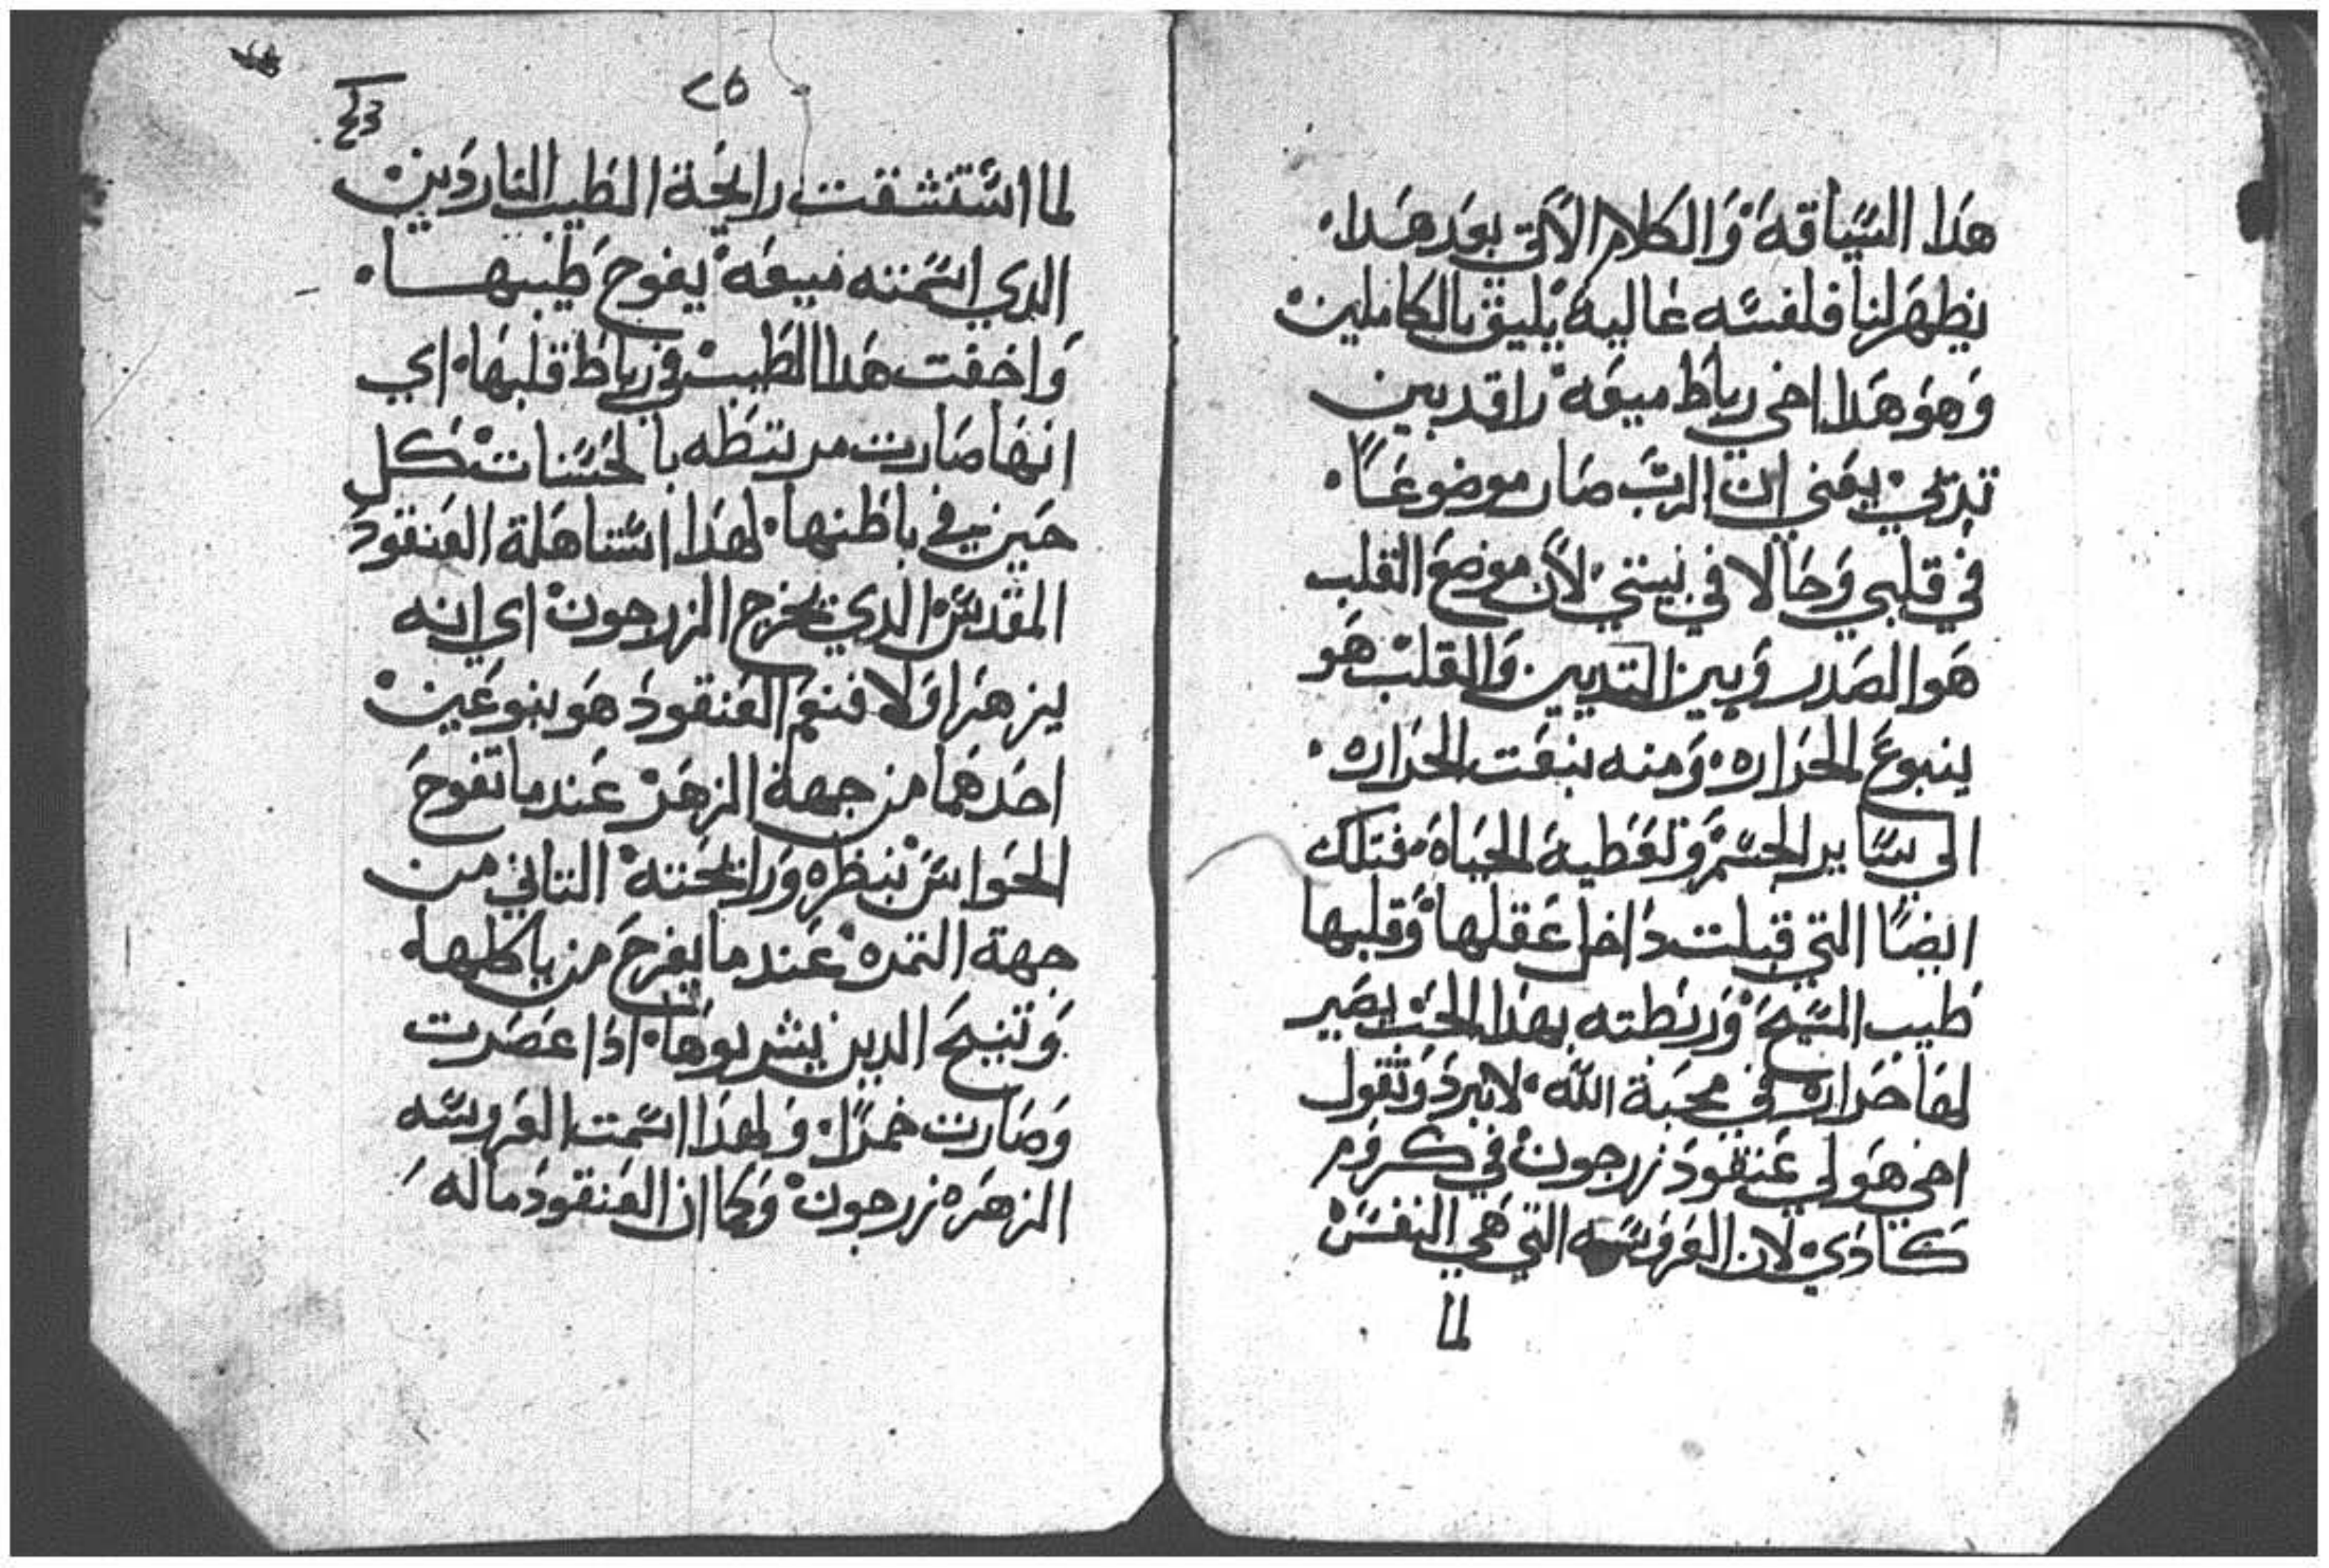 هَدا السَّياقة وَالكلام الآتي بعَد هَدا.
يظهَر لنا فلفسَه عَالية يليق بالكاملين
وَهوَ هَدا اخي رباط ميعَة راقد بين
تديي. يعَني ان الربَ صَار موضوعَاً.
في قلبي وَحَالا في نيتي. لأن موضعَ القلب
هوَ الصَدر وَبين التديين وَالقلب هَو
ينبوعَ الحَراره. وَمنه ينبعَت الحَراره.
الى سَاير الجسَم وَتعَطية الحيَاة. فتلك
ايضاً التي قبلت دَاخل عَقلهَا وَقلبها
طَيب المسَيحَ وَربطته بهدا الحَب يصَير
لهَا حَراره في محَبة الله. لا تبردَ وَتقول
اخي هَو لي عَنقودَ زرجون في كروَم
كَادَي. لان العَروَسَه التي هَي النفسَ
لما
٢٥
لما اسَتنشقت رايحَة الطَيب الناردَين
الدي اسَمته ميعَة يفوحَ طَيبها.
وَاخفت هَدا الطَيب في رباطَ قلبهَا. اي
انهَا صَارت مرتبطَه بالحَسَنات كل
حَين في باطَنها. لهَدا اسَتاهَلة العَنقودَ
المقدسَ الدي يخرج الزرجون اي انه
يزهَر اوَلا فنعَم العَنقودَ هَو بنوعَين
احَدهَما من جهة الزهَر عَندما تفوحَ
الحَواسَ بنظَره وَرايحَته التاني من
جهة التمره عَندما يفرحَ من ياكلها.
وَتنيحَ الدين يشربوهَا. ادَا عَصَرت
وَصَارت خمراً. وَلهَدا اسَمت العَروسَه
الزهَره زرجون وَكما ان العَنقودَ ما له